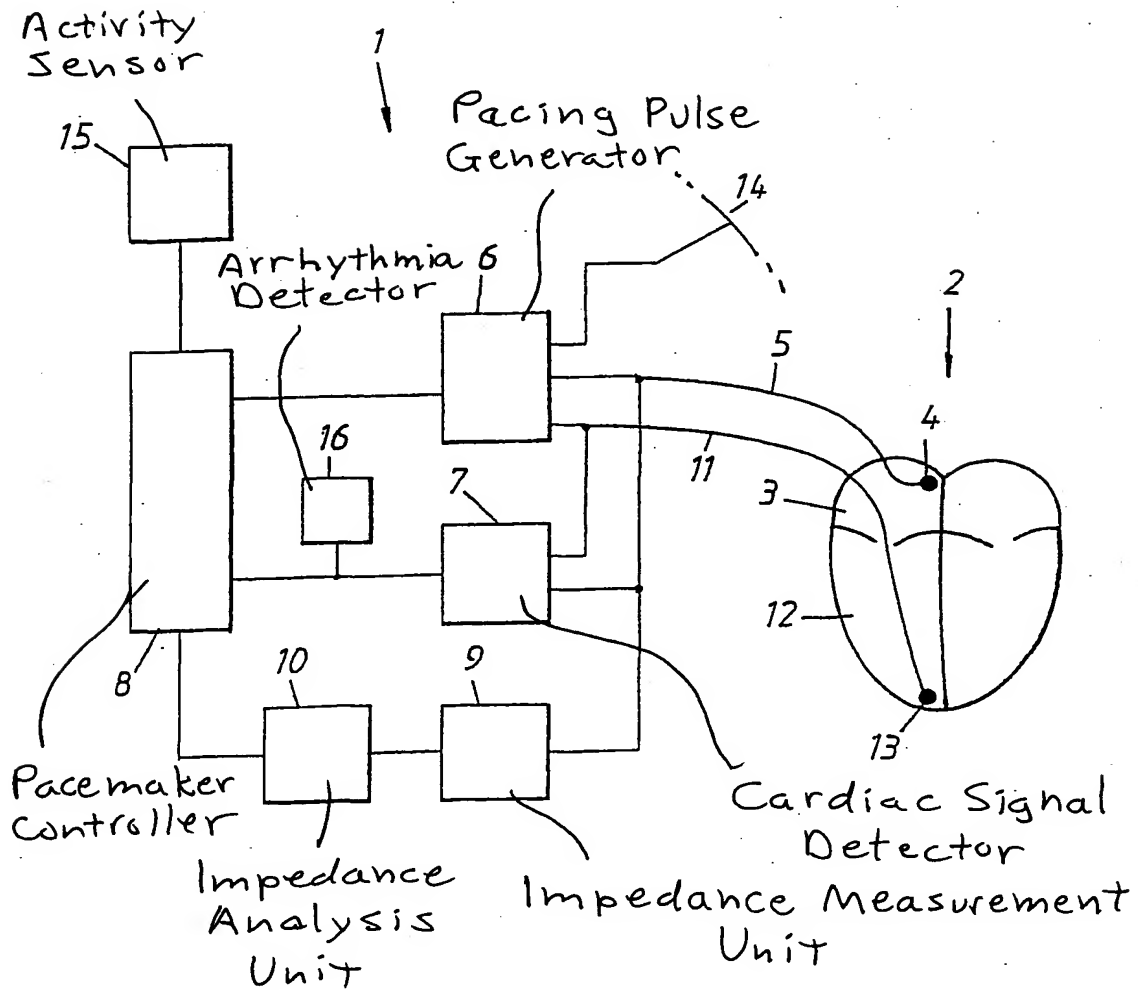 Activity
Sensor
1
Pacing Pulse
Generator
15
14
Arrhythmia
Detector
6
2
5
4
16
11
7
3
12
10
9
8
13
Pacemaker
Controller
Cardiac Signal
Detector
Impedance
Analysis
Unit
Impedance Measurement
Unit